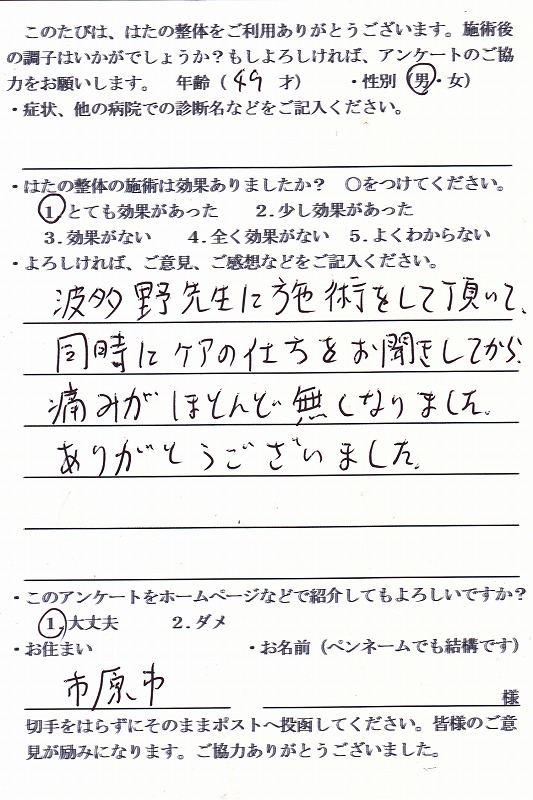 このたびは、はたの整体をご利用ありがとうございます。施術後
の調子はいかがでしょうか？もしよろしければ、アンケートのご協
力をお願いします。　年齢（ 49 才）　・性別（男・女）
・症状、他の病院での診断名などをご記入ください。
・はたの整体の施術は効果ありましたか？　〇をつけてください。
1.とても効果があった　2.少し効果があった
3.効果がない　4.全く効果がない　5.よくわからない
・よろしければ、ご意見、ご感想などをご記入ください。
波多野先生に施術をして頂いて、
同時にケアの仕方をお聞きしてから、
痛みがほとんど無くなりました。
ありがとうございました。
・このアンケートをホームページなどで紹介してもよろしいですか？
1.大丈夫　2.ダメ
・お住まい　・お名前（ペンネームでも結構です）
市原市　様
切手をはらずにそのままポストへ投函してください。皆様のご意
見が励みになります。ご協力ありがとうございました。